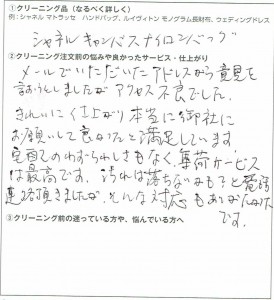 ①クリーニング品（なるべく詳しく）
例：シャネル マトラッセ ハンドバッグ、ルイヴィトン モノグラム長財布、ウェディングドレス
シャネル キャンバスナイロンバッグ
②クリーニング注文前の悩みや良かったサービス・仕上がり
メールでいただいたアドレスから意見を
うしましたが アクセス不良でした。
きれいに仕上がり 本当に御社に
お願いして良かったと満足しています。
のわずらわしさもなく、集荷サービス
は最高です。汚れは落ちないかも？と電話
連絡頂きましたが、そんな対応もありがたかった
です。
③クリーニング前の迷っている方や、悩んでいる方へ